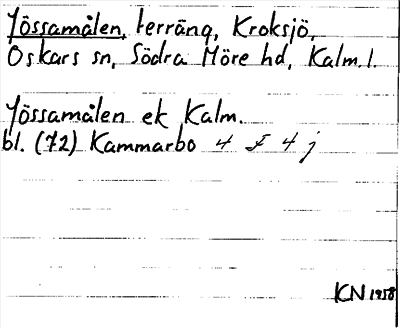 Jössamålen, terräng, Kroksjö,
Oskars sn, Södra Möre hd, Kalm.l.
Jössamålen ek Kalm.
bl. (72) Kammarbo 4 F 4 j
KN 1958